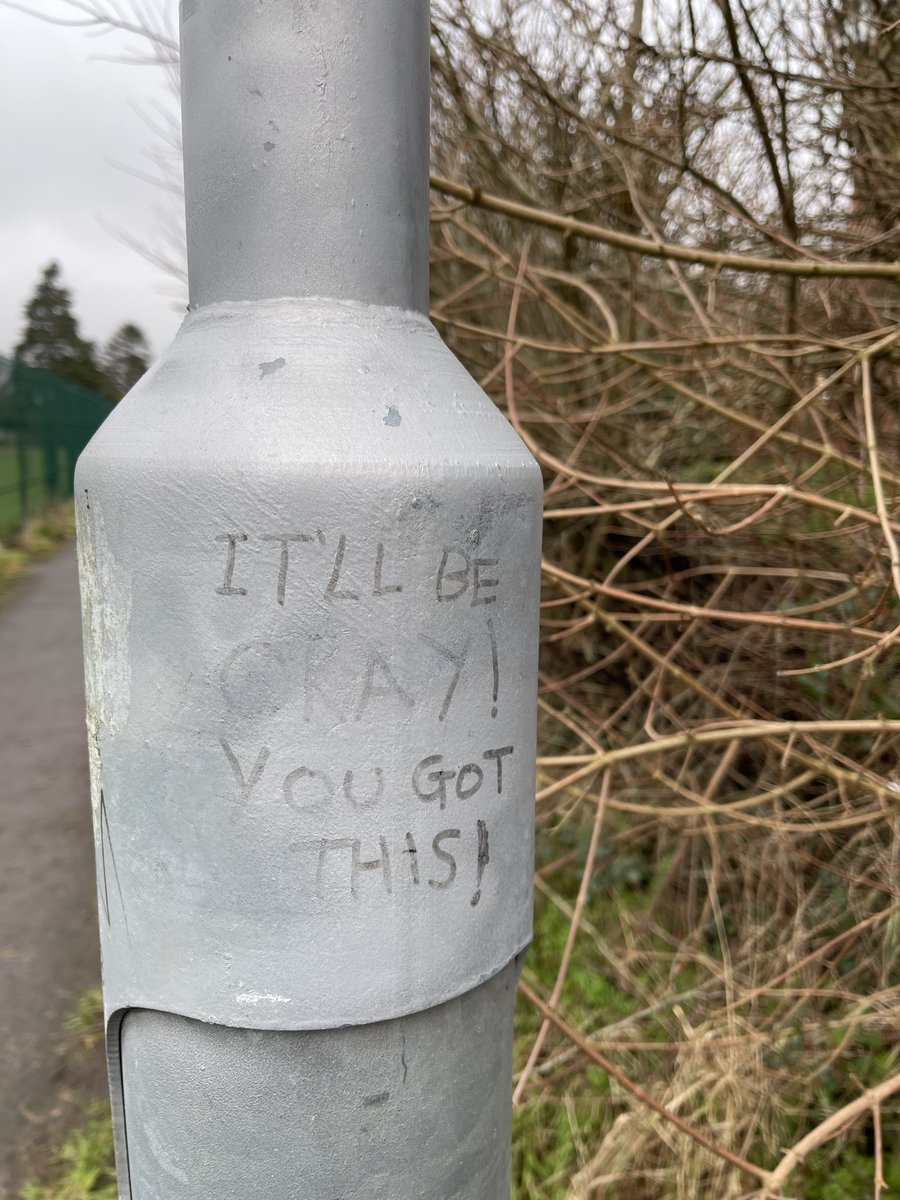 IT'LL BE
OKAY!
YOU GOT
THIS!